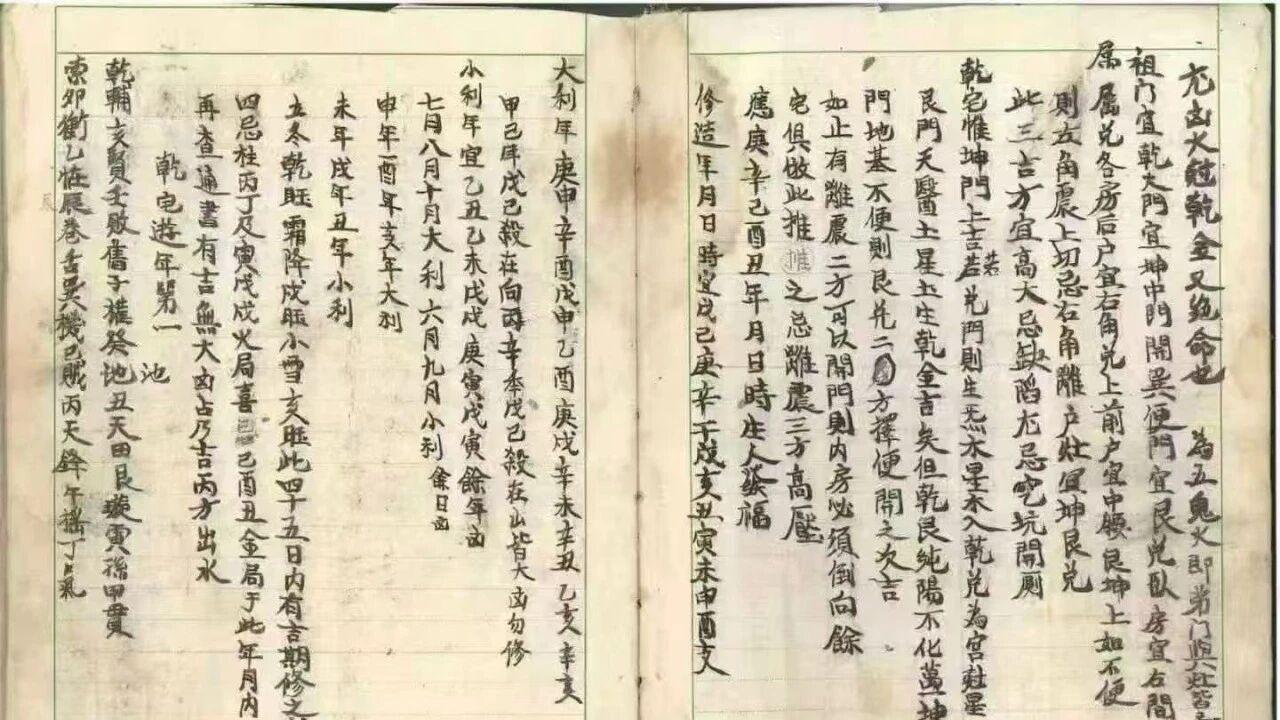 尤凶火剋乾金又絶命也 為五鬼火即弟門與灶皆
祖門宜乾大門宜坤中門開巽便門宜艮兑臥房宜右間
屬屬兑各房后户宜右角兑上前户宜中腰艮坤上如不便
則左角震上切忌右角離户灶宜坤艮兑
此三吉方宜高大忌缺陷尤忌吃坑開厠
乾宅惟坤門上吉若兑門則生炁木星木入乾兑為宮尅星
艮門天醫土星土生乾金吉矣但乾艮純陽不化蓋坤
門地基不便則艮兑二方擇便開之次吉
如止有離震二方可以開門則内房必須倒向餘
宅俱倣此推之忌離震三方高壓
應庚辛己酉丑年月日時生人發福
修造年月日時宜戊己庚辛子戌亥丑寅未申酉支
大利年庚申辛酉戊申乙酉庚戌辛未辛丑乙亥辛亥
甲己年戊己殺在向丙辛季戊己殺在山皆大凶勿修
小利年宜乙丑乙未戊戌庚寅戊寅餘年凶
七月八月十月大利六月九月小利餘日凶
申年酉年亥年大利
未年戌年丑年小利
立冬乾旺霜降戌旺小雪亥旺此四十五日内有吉期修之
四忌柱丙丁及寅戌戌火局喜己酉丑金局于此年月内
再查通書有吉無大凶占乃吉丙方出水
乾宅遊年第一 池
乾輔亥賢壬敗舊子權癸地丑天田艮璇寅孫甲貫
索卯衝乙恠辰巷舌巽機巳賊丙天鋒午摇丁氣